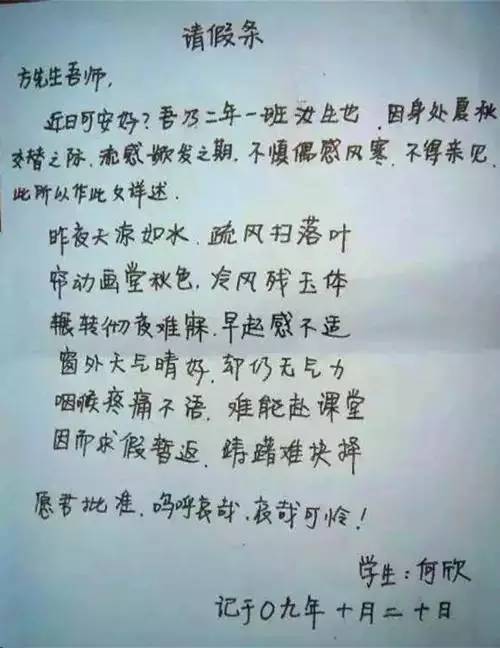 请假条
方先生吾师,
近日可安好?吾乃二年一班汝生也.因身处夏秋
交替之际.流感欻发之期.不慎偶感风寒.不得亲见.
此所以作此文详述.
昨夜天凉如水.疏风扫落叶
帘动画堂秋色,冷风残玉体
辗转彻夜难寐.早起感不适
窗外天气晴好.却仍无气力
咽喉疼痛不语.难能赴课堂
因而求假暂返.踌躇难抉择
愿君批准.呜呼哀哉.哀哉可怜!
学生:何欣
记于〇九年十月二十日